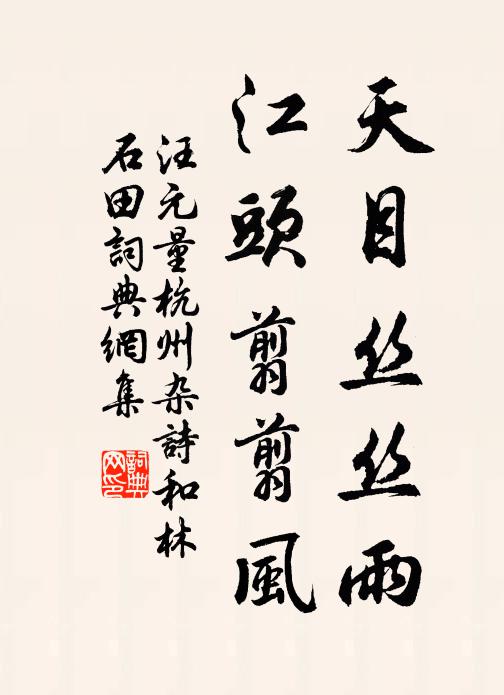 天目丝丝雨
江頭翦翦風
汪元量杭州杂詩和林
石田詞典網集
詞典网印